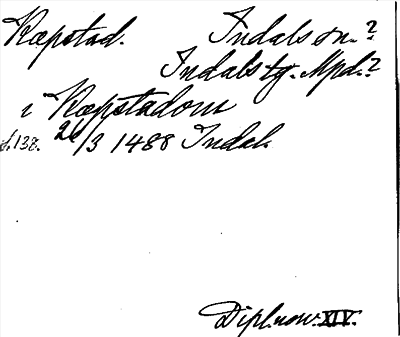 Kæpstad. Indals sn.?
Indals tg. Mpd.?
i Kæpstadom
s. 138. 26/3 1488 Indal.
Dipl. norv. XIV.